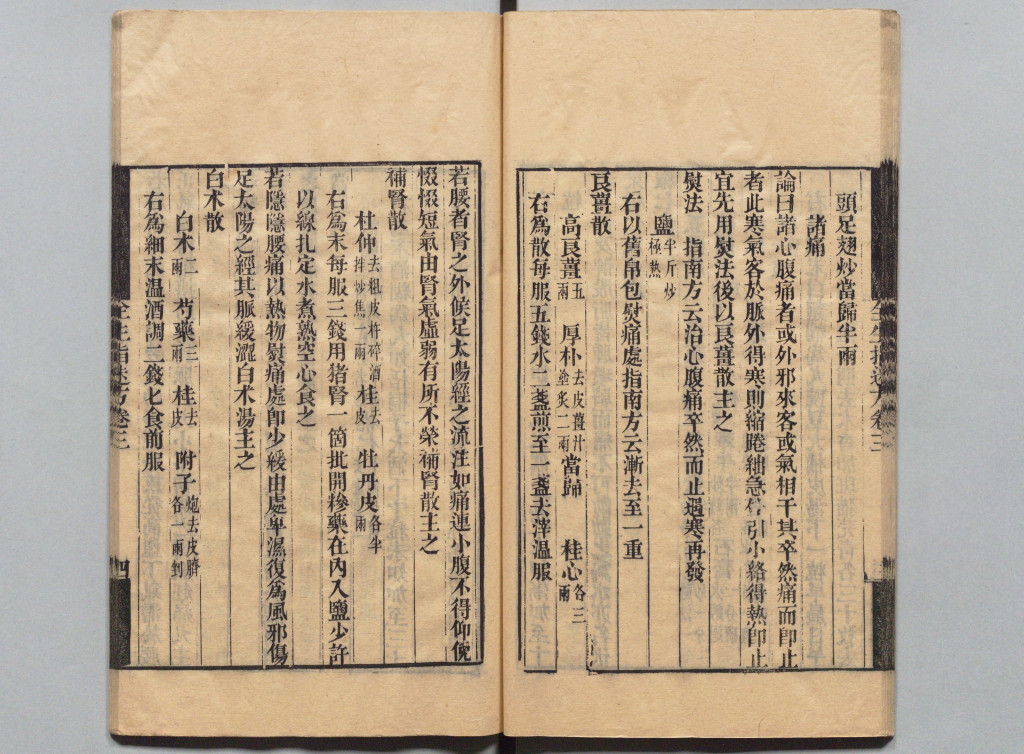 頭足翅炒當歸半兩
諸痛
論曰諸心腹痛者或外邪來客或氣相干其卒然痛而即止
者此寒氣客於脈外得寒則縮踡絀急引小絡得熱即止
宜先用熨法後以良薑散主之
熨法　指南方云治心腹痛卒然而止遇寒再發
鹽半斤炒極熱
右以舊帛包熨痛處指南方云漸去至一重
良薑散
高良薑五兩　厚朴去皮薑汁塗炙二兩　當歸　桂心各三兩
右為散每服五錢水二盞煎至一盞去滓溫服
若腰者腎之外候足太陽經之流注如痛連小腹不得仰俛
惙惙短氣由腎氣虛弱有所不榮補腎散主之
補腎散
杜仲去粗皮杵碎酒拌炒焦一兩　桂去皮　牡丹皮各半兩
右為末每服三錢用猪腎一箇批開糝藥在內入鹽少許
以線扎定水煮熟空心食之
若隱隱腰痛以熱物熨痛處即少緩由處卑濕復為風邪傷
足太陽之經其脈緩澀白术湯主之
白术散
白术二兩　芍藥三兩　桂去皮　附子炮去皮臍各一兩剉
右為細末溫酒調二錢匕食前服
全生指迷方卷三
四